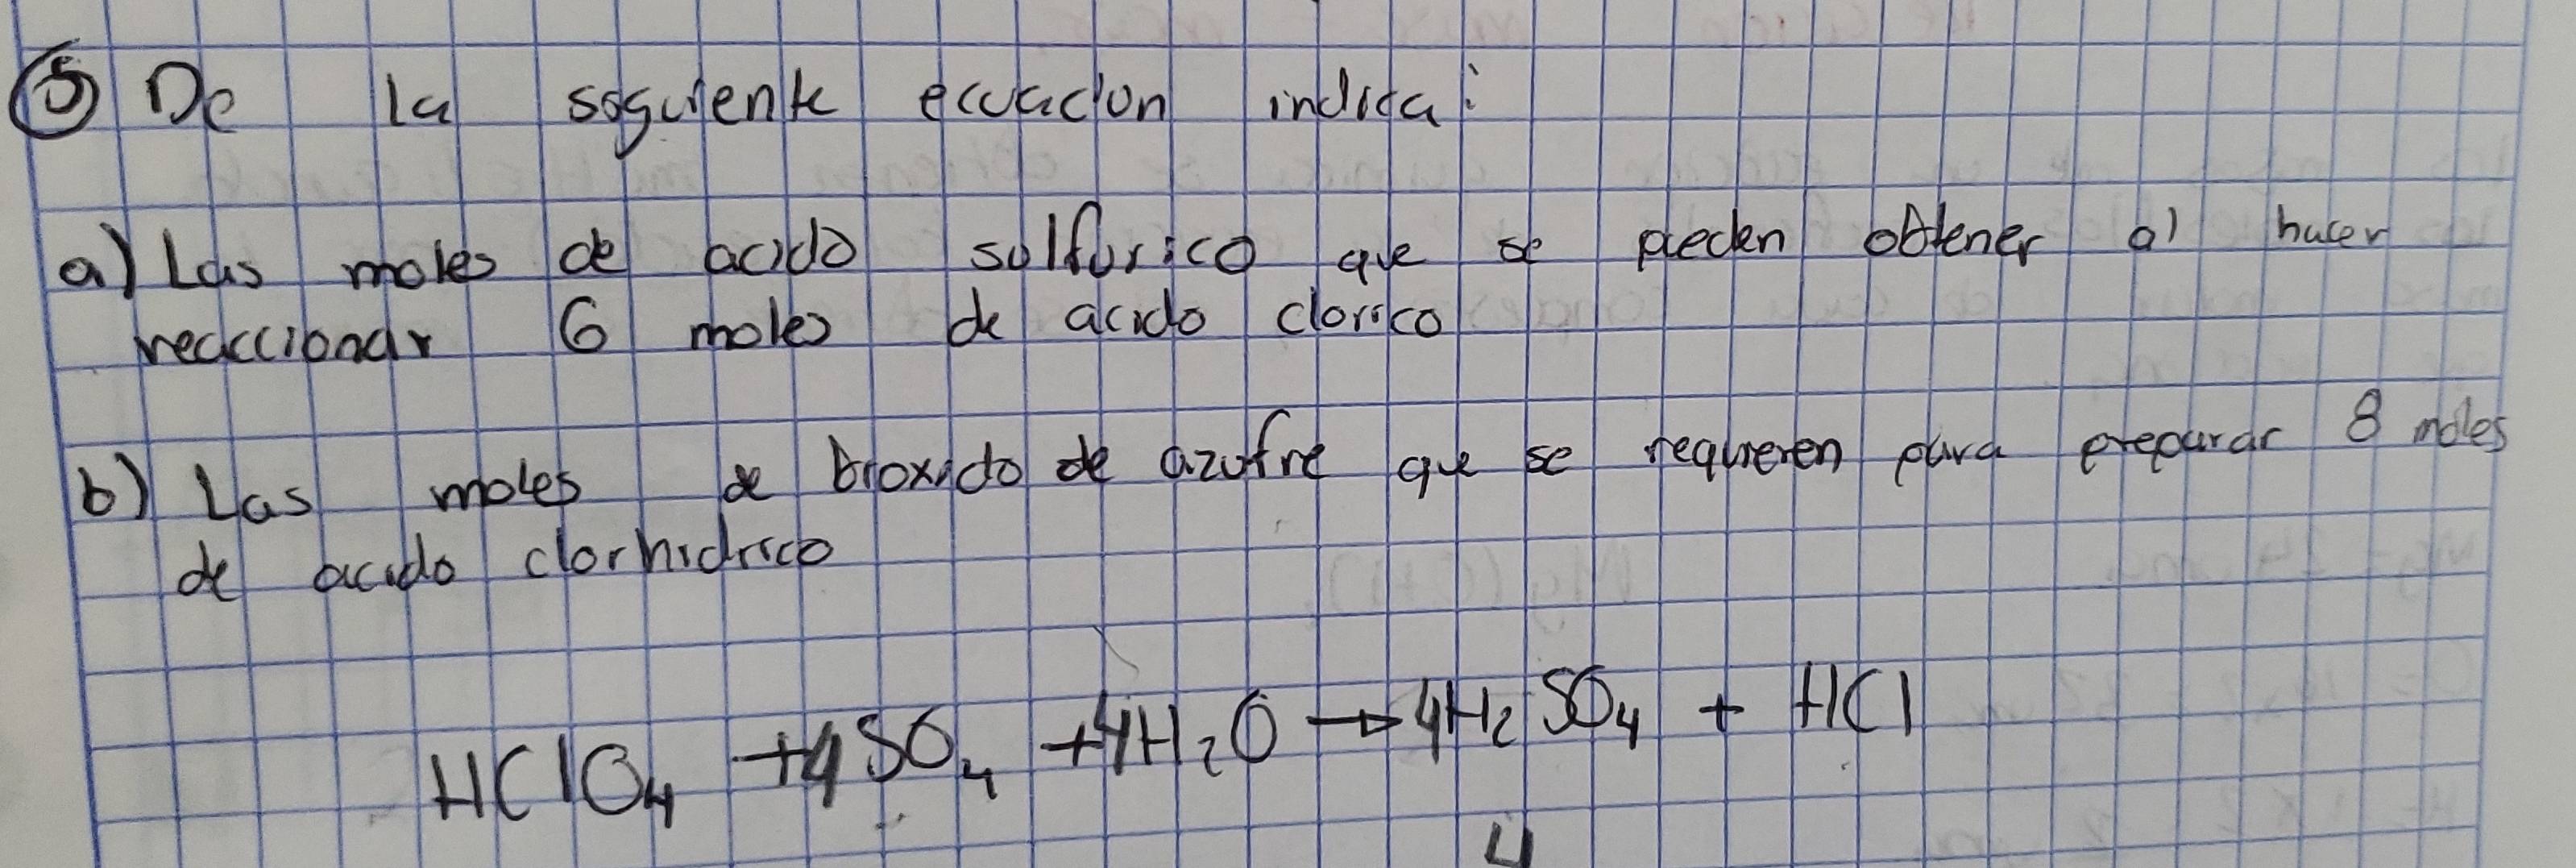 ⑤ De la siguiente ecuacion indica:
a) Las moles de acido sulfurico que se pueden obtener al hacer
reaccionar 6 moles de acido clorico
b) Las moles de bioxido de azufre que se requieren para preparar 8 moles
de acido clorhidrico
HClO₄ +4SO₄ +4H₂O → 4H₂SO₄ + HCl